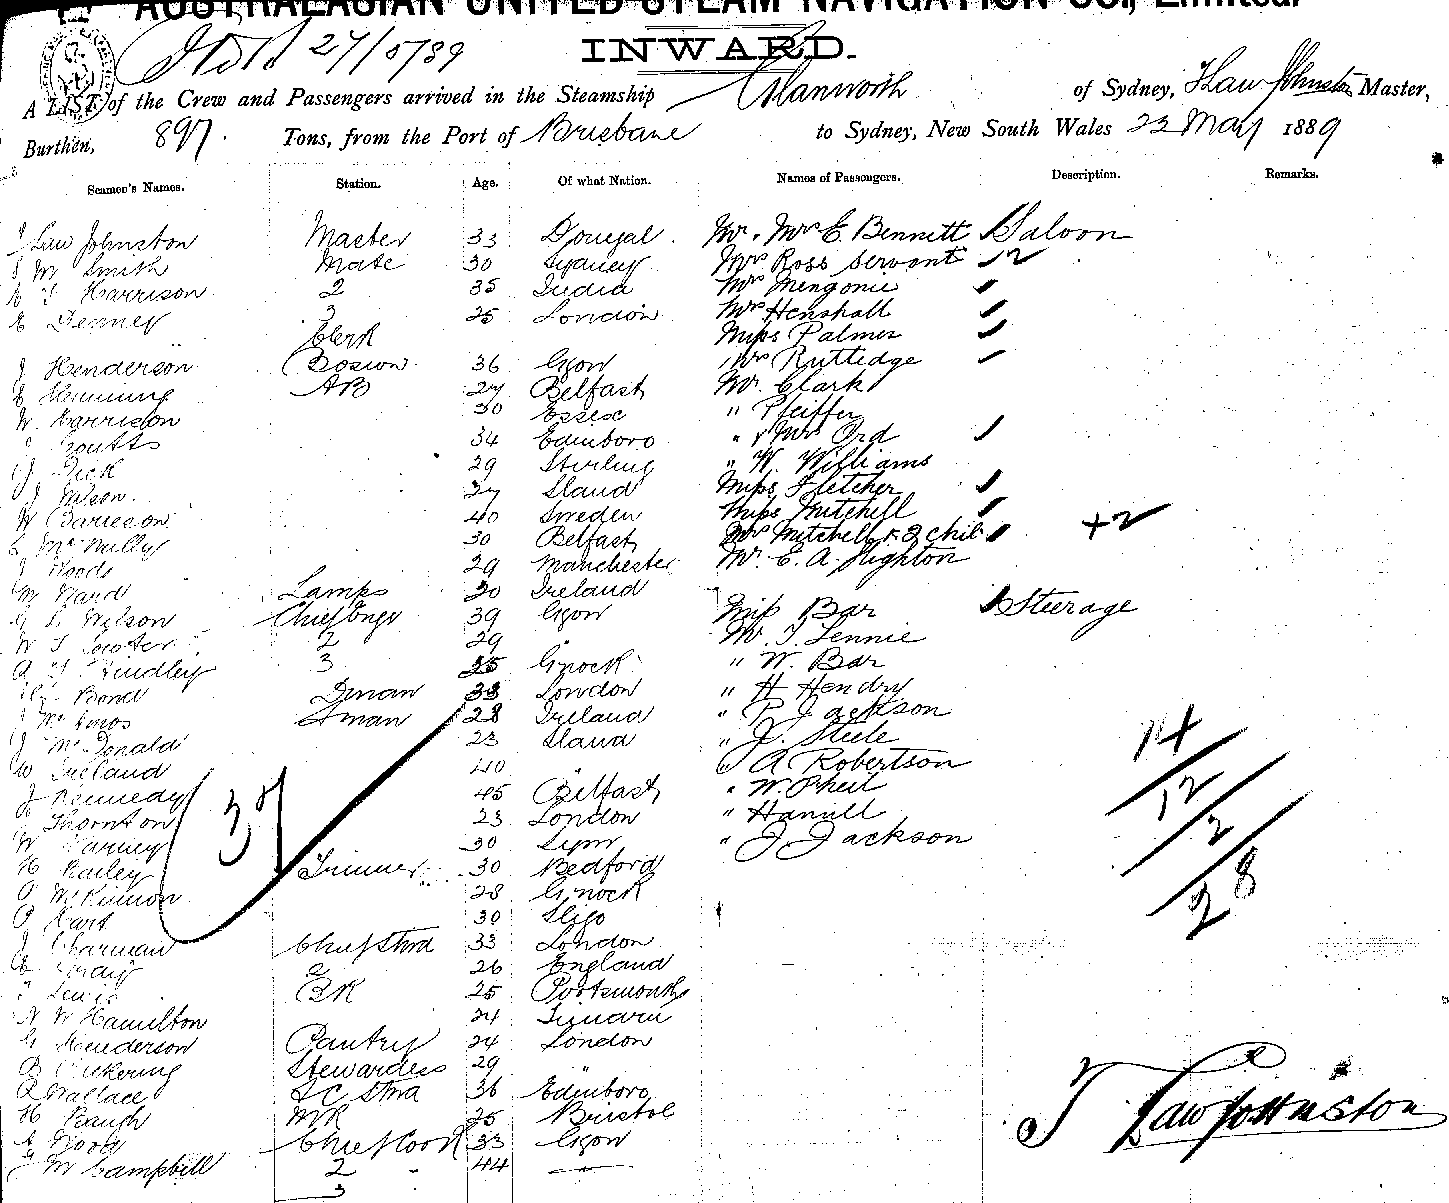 AUSTRALASIAN UNITED STEAM NAVIGATION CO., Limited.
27/5/89
INWARD.
A LIST of the Crew and Passengers arrived in the Steamship Glanworth of Sydney, T Law Johnston Master,
Burthen, 897 Tons, from the Port of Brisbane to Sydney, New South Wales 23 May 1889
Seamen's Names. Station. Age. Of what Nation. Names of Passengers. Description. Remarks.
T Law Johnston Master 33 Donegal Mr. Mrs E. Bennett Saloon
M Smith Mate 30 Sydney Mrs Ross Servant 2
E T Harrison 2 35 India Mrs Mengonie
E Denney 3 25 London Mrs Henshall
Clerk Miss Palmer
J Henderson Boswn 36 Lgow Mrs Ruttledge
E Henning AB 27 Belfast Mr. Clark
W. Harrison 30 Essex " Pfeiffer
J Coutts 34 Edinboro " & Mrs Ord
J. Dick 29 Stirling " W. Williams
J Nelson 27 Sland Miss Fletcher
W 40 Sweden Miss Mitchell
McNully 30 Belfast Mrs Mitchell & 3 chil +2
J Woods 29 Manchester Mr. E. A. Highton
M Ward Lamps 30 Ireland
G L Wilson Chief Engr 39 Lgow Miss Bar Steerage
W T 2 29 " Mr. T. Lennie
A T Hindley 3 25 Gnock " W. Bar
Bond Dman 33 London " H Hendry
J McAmos Fman 28 Ireland " P Jackson
J McDonald 23 Sland " J. Steele
W Ireland 40 " " A Robertson
J Kennedy 45 Belfast " W. Pheil
Thornton 23 London " Hamill
W Varney 30 " J Jackson
H Bailey Trimmer 30 Bedford
McKinnon 28 Gnock
P Hart 30 Sligo
J Charman Chief Stwd 33 London
Craig 2 26 England
Lewis BK 25 Portsmouth
N W Hamilton 24
G Henderson Pantry 24 London
B Pickering Stewardess 29
R Wallace SC Stwd 36 Edinboro
H Baugh MR 25 Bristol
E Wood Chief Cook 33 Lgow
M Campbell 2 44
3
37
14
12
2
28
T Law Johnston